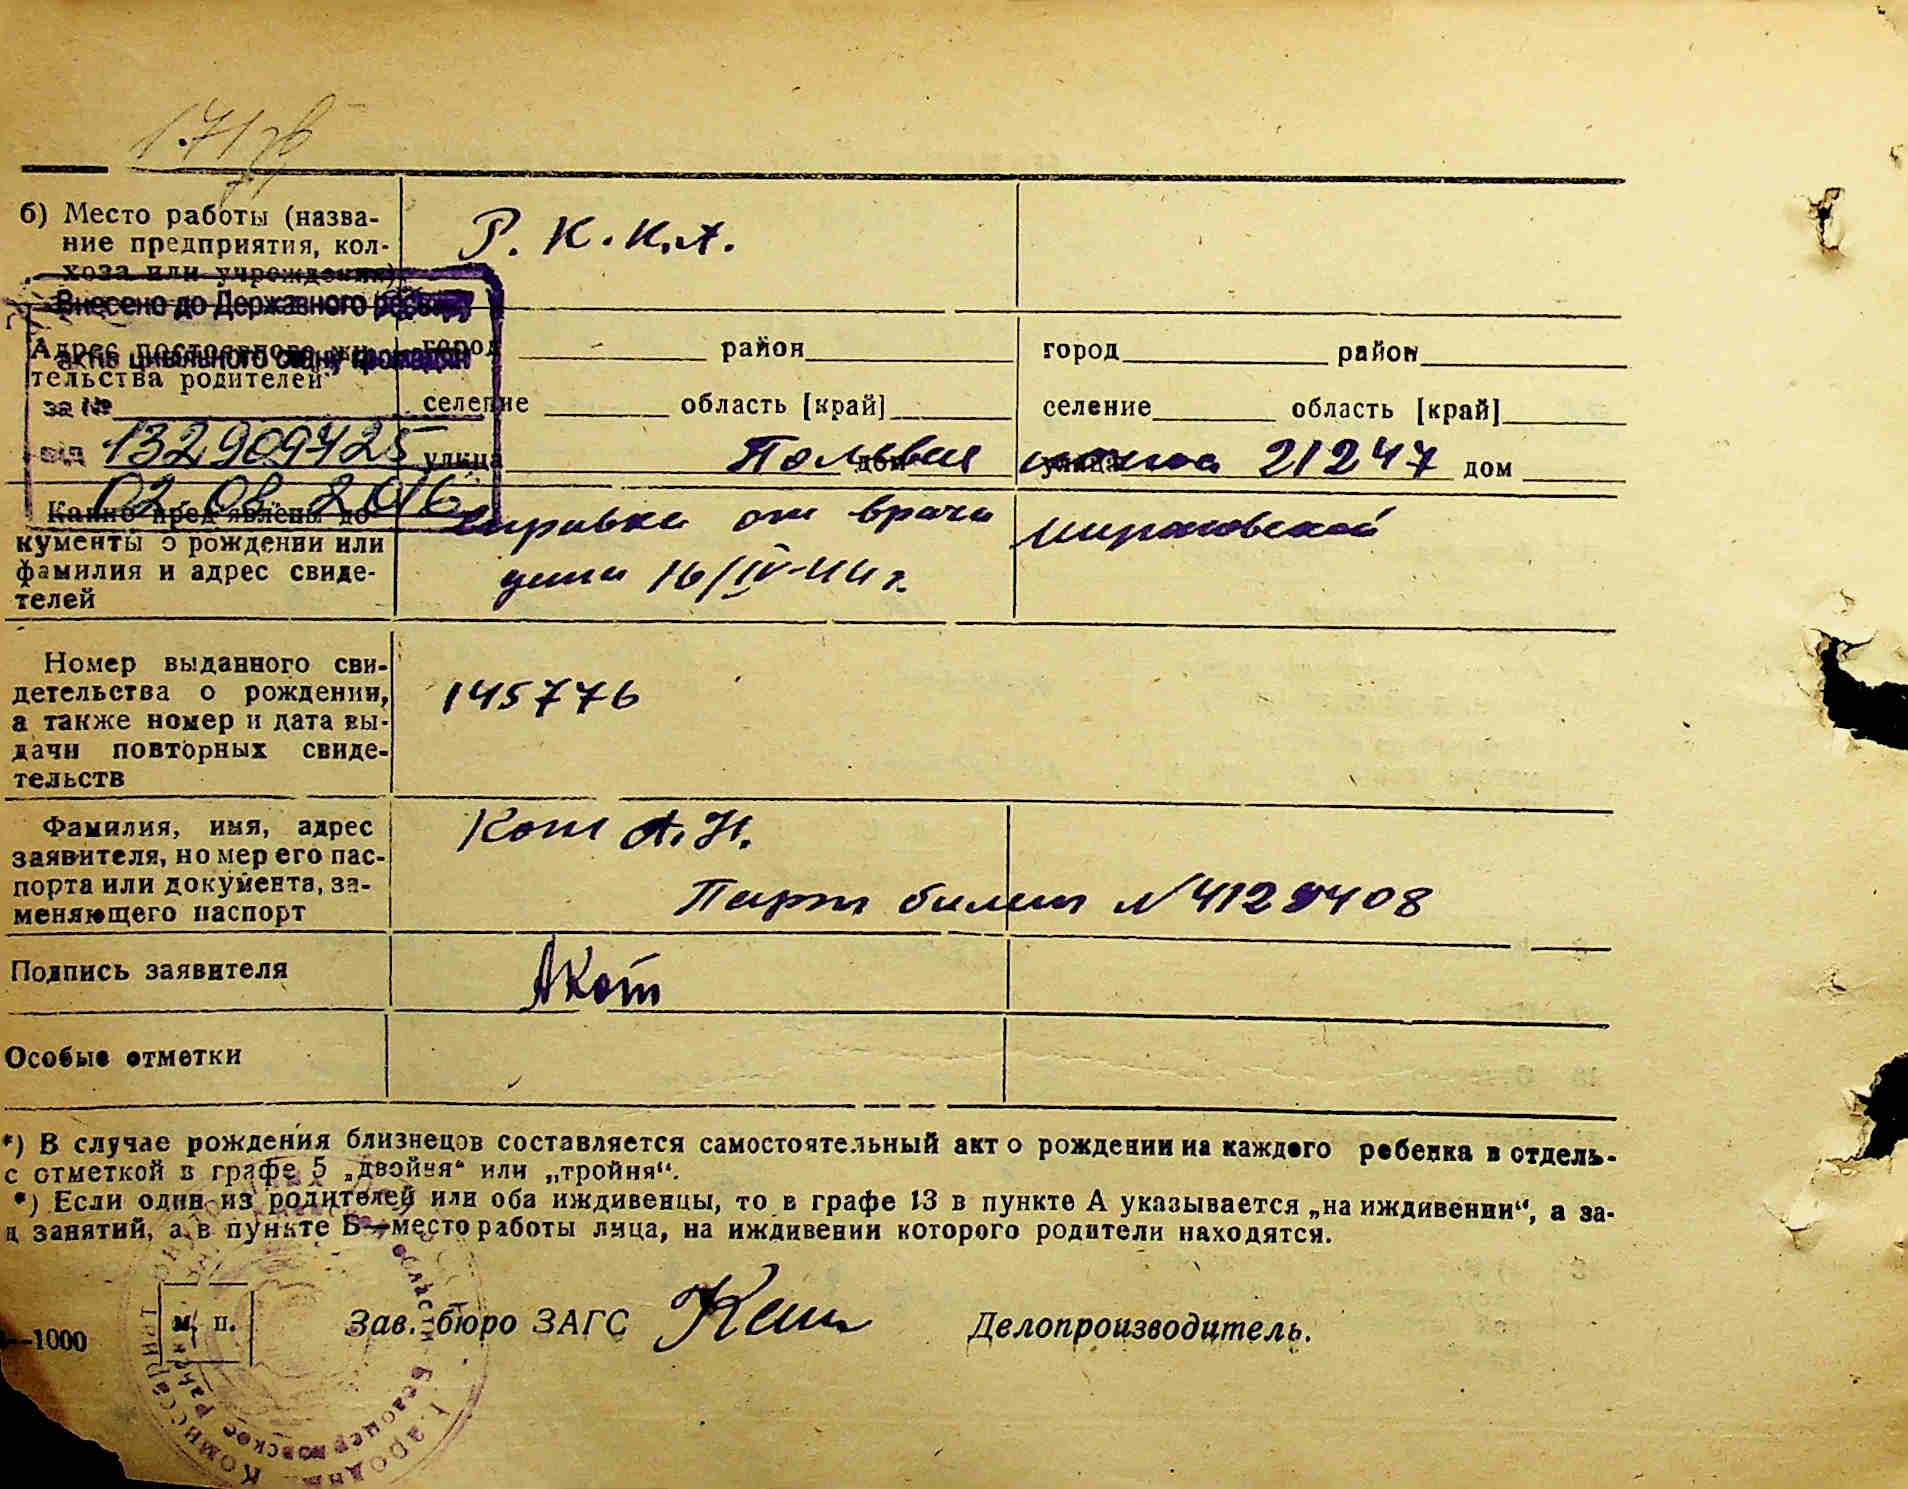 171
б) Место работы (назва-
ние предприятия, кол-
хоза или учреждения)
Р. К. К. А.
Внесено до Державного реєстру
актів цивільного стану громадян
за №
від 132909425
02 08 2016
Адрес постоянного жи-
тельства родителей
город район
селение область [край]
улица дом
город район
селение область [край]
улица дом
Польвая почта 21247
Какие пред'явлены до-
кументы о рождении или
фамилия и адрес свиде-
телей
справка от врача
16/IV-44 г.
Номер выданного сви-
детельства о рождении,
а также номер и дата вы-
дачи повторных свиде-
тельств
145776
Фамилия, имя, адрес
заявителя, номер его пас-
порта или документа, за-
меняющего паспорт
Кот А. Н.
Парт билет №4129408
Подпись заявителя
АКот
Особые отметки
*) В случае рождения близнецов составляется самостоятельный акт о рождении на каждого ребенка в отдель-
с отметкой в графе 5 „двойня“ или „тройня“.
*) Если один из родителей или оба иждивенцы, то в графе 13 в пункте А указывается „на иждивении“, а за-
д занятий, а в пункте Б—место работы лица, на иждивении которого родители находятся.
—1000
м. п.
Зав. бюро ЗАГС
Делопроизводитель.